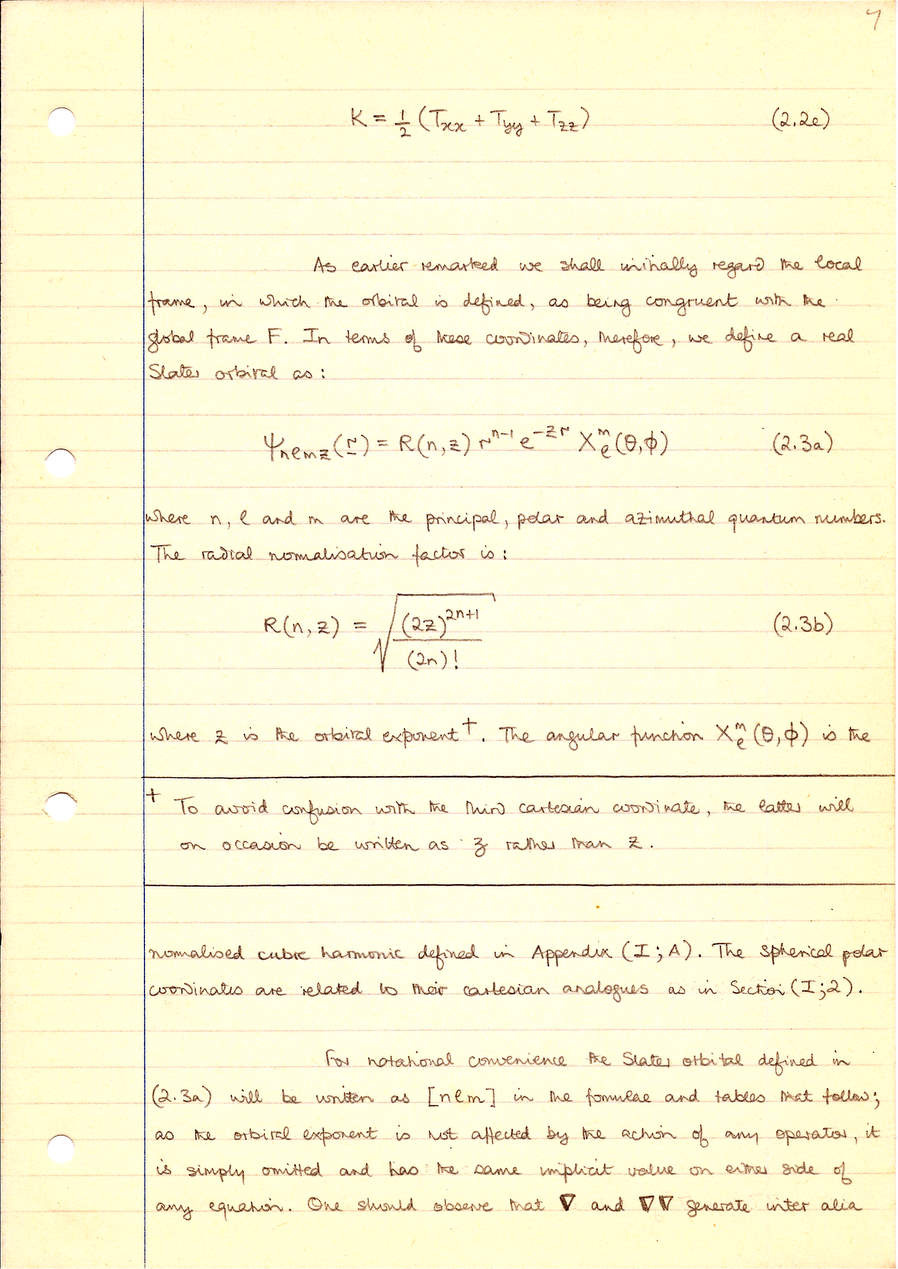 7
K = 1/2 (Txx + Tyy + Tzz) (2.2e)
As earlier remarked we shall initially regard the local
frame, in which the orbital is defined, as being congruent with the
global frame F. In terms of these coordinates, therefore, we define a real
Slater orbital as:
Ψnlmz(r) = R(n,z) r^n-1 e^-zr X_l^m(θ,φ) (2.3a)
where n, l and m are the principal, polar and azimuthal quantum numbers.
The radial normalisation factor is:
R(n,z) = √((2z)^2n+1 / (2n)!) (2.3b)
where z is the orbital exponent†. The angular function X_l^m(θ,φ) is the
† To avoid confusion with the third cartesian coordinate, the latter will
on occasion be written as ʒ rather than z.
normalised cubic harmonic defined in Appendix (I;A). The spherical polar
coordinates are related to their cartesian analogues as in Section (I;2).
For notational convenience the Slater orbital defined in
(2.3a) will be written as [nlm] in the formulae and tables that follow;
as the orbital exponent is not affected by the action of any operator, it
is simply omitted and has the same implicit value on either side of
any equation. One should observe that ∇ and ∇∇ generate inter alia